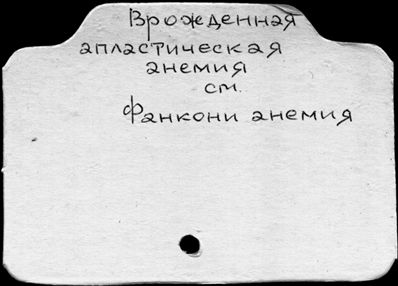 Врожденная
апластическая
анемия
см.
Фанкони анемия